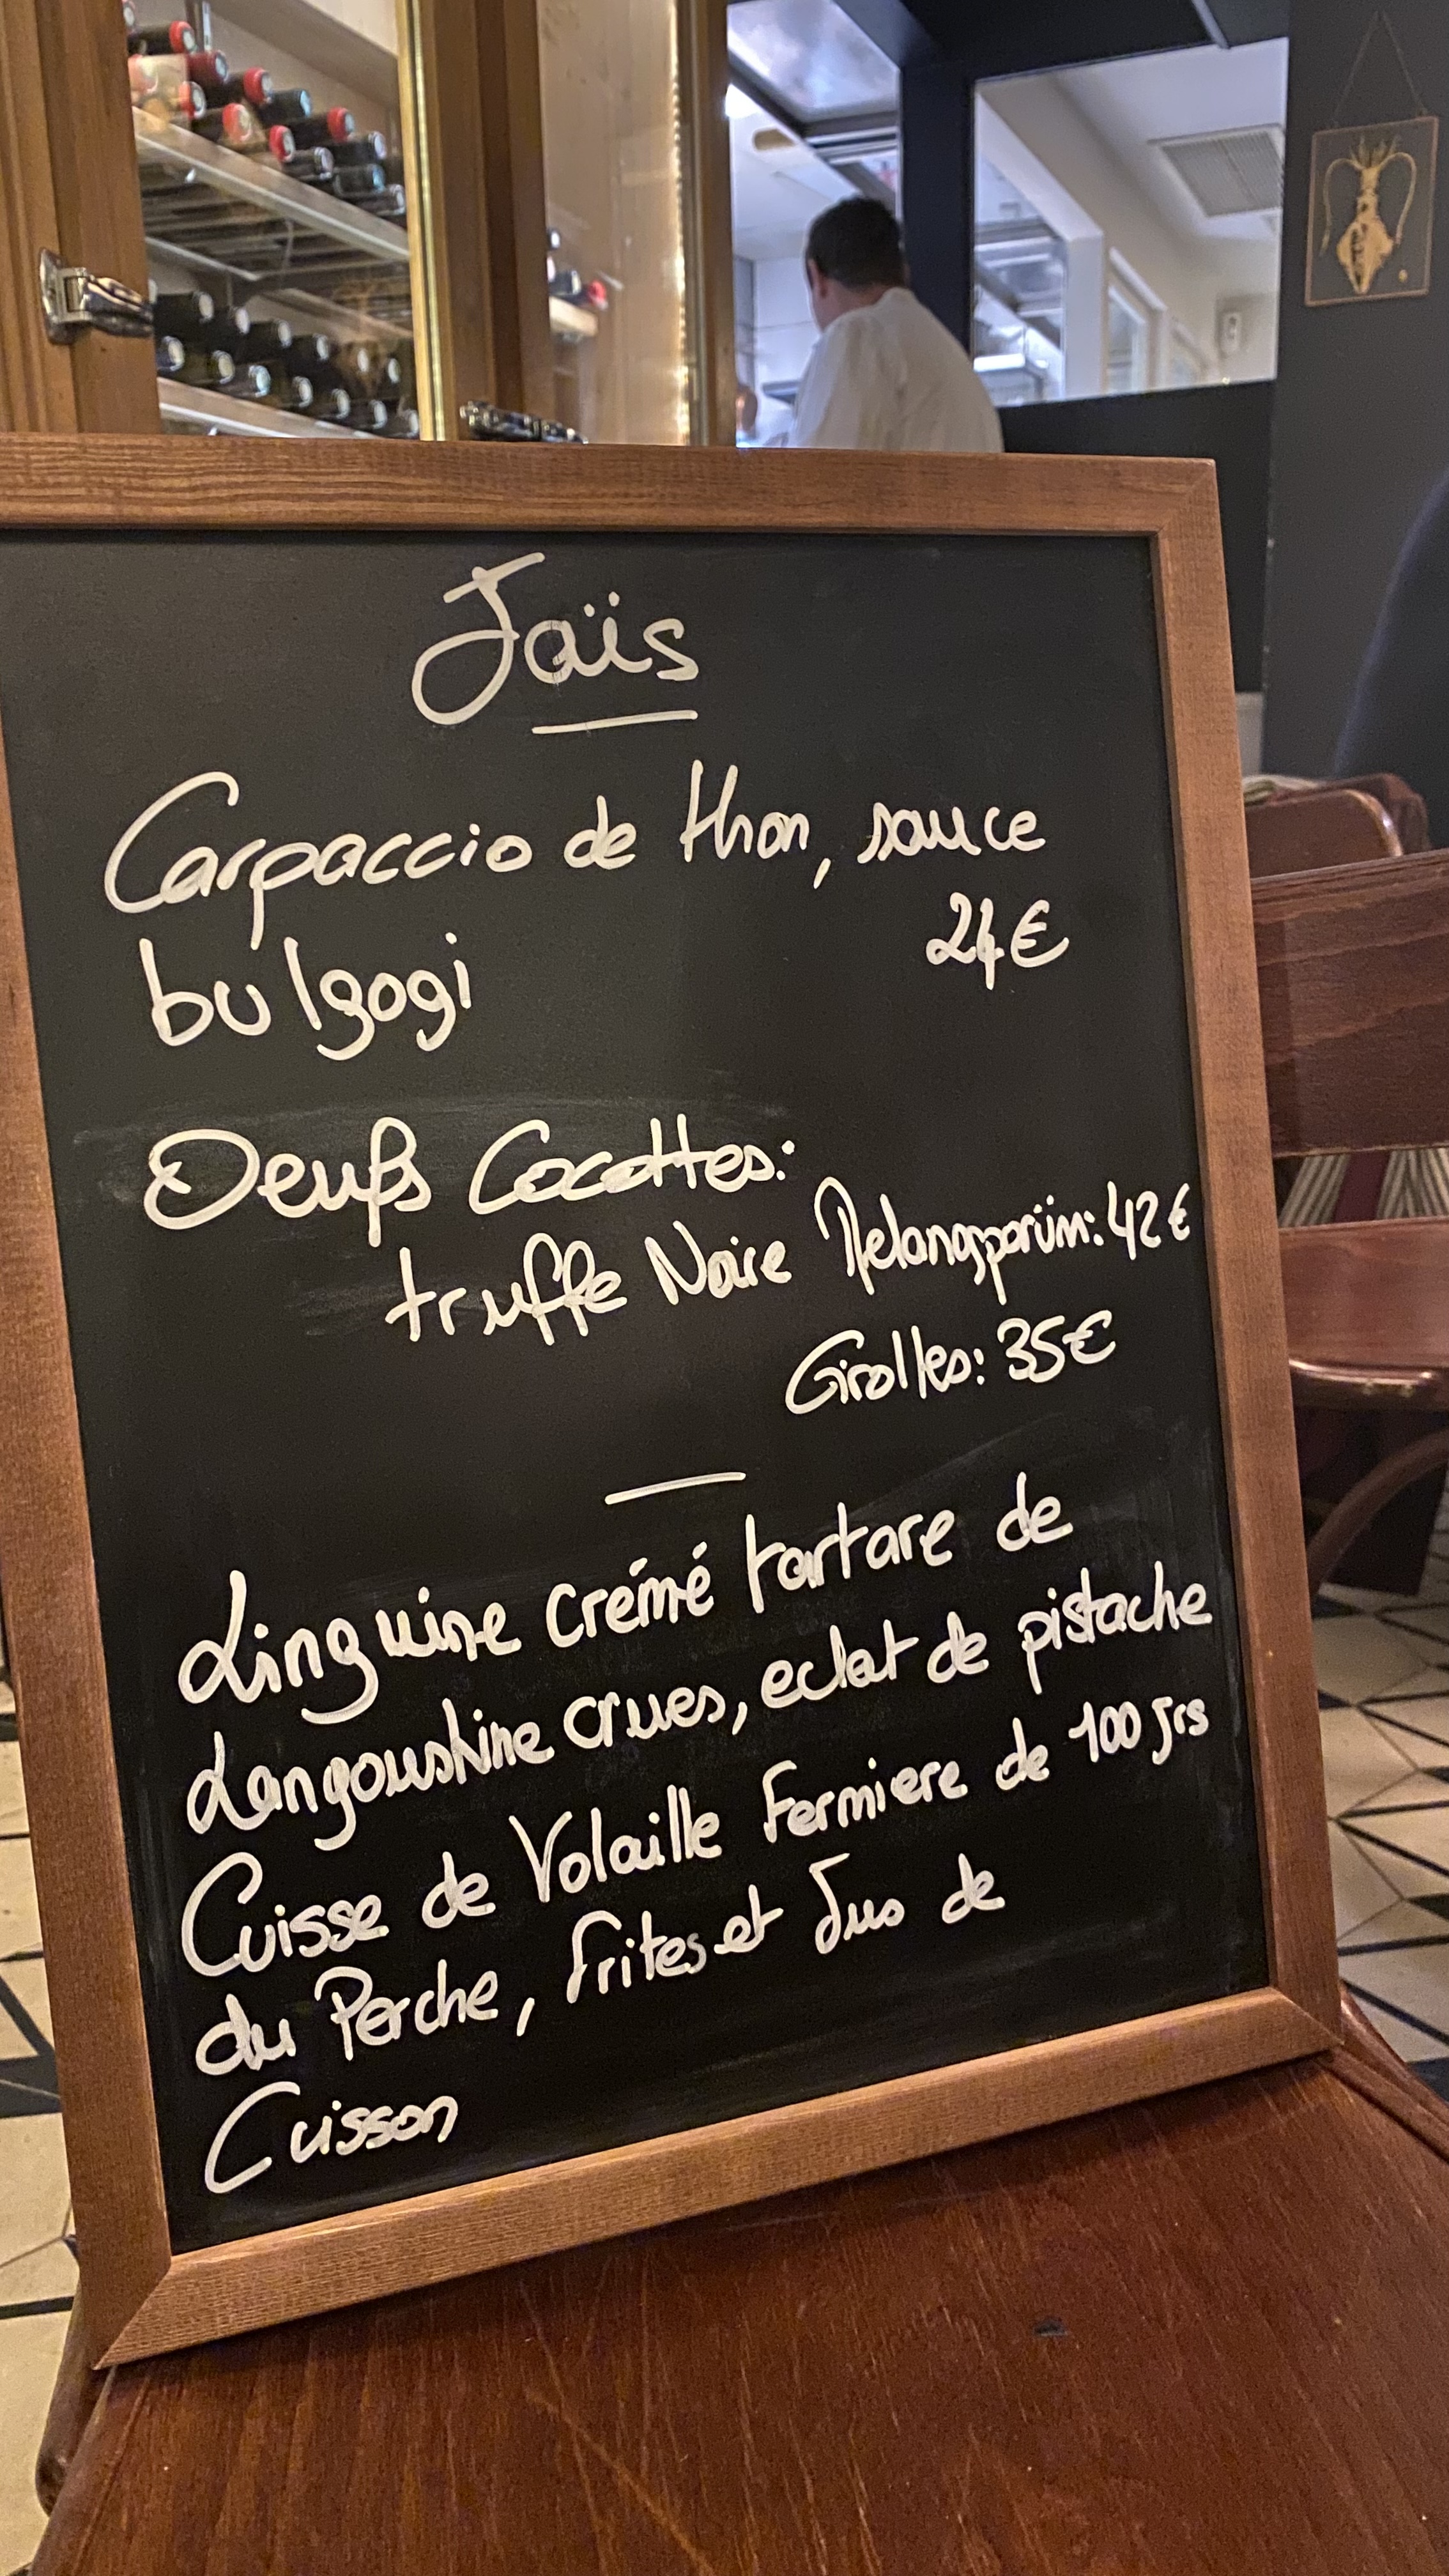 Jaïs
Carpaccio de thon, sauce
bulgogi 24€
Oeufs Cocottes:
truffe Noire Melanosporüm: 42€
Girolles: 35€
Linguine crémé tartare de
Langoustine crues, eclat de pistache
Cuisse de Volaille Fermiere de 100 jrs
du Perche, frites et Jus de
Cuisson